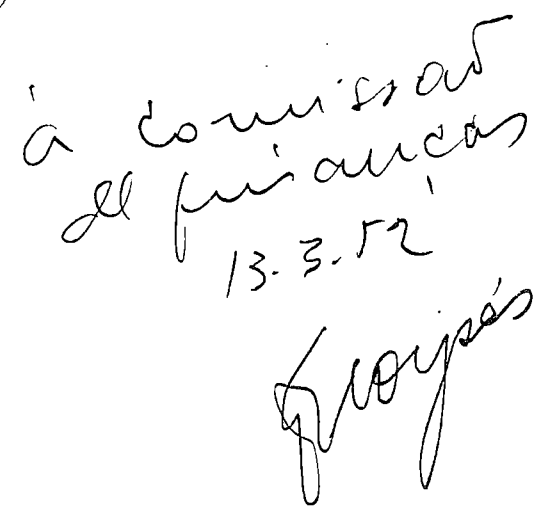 à comissão
de finanças
13.3.52